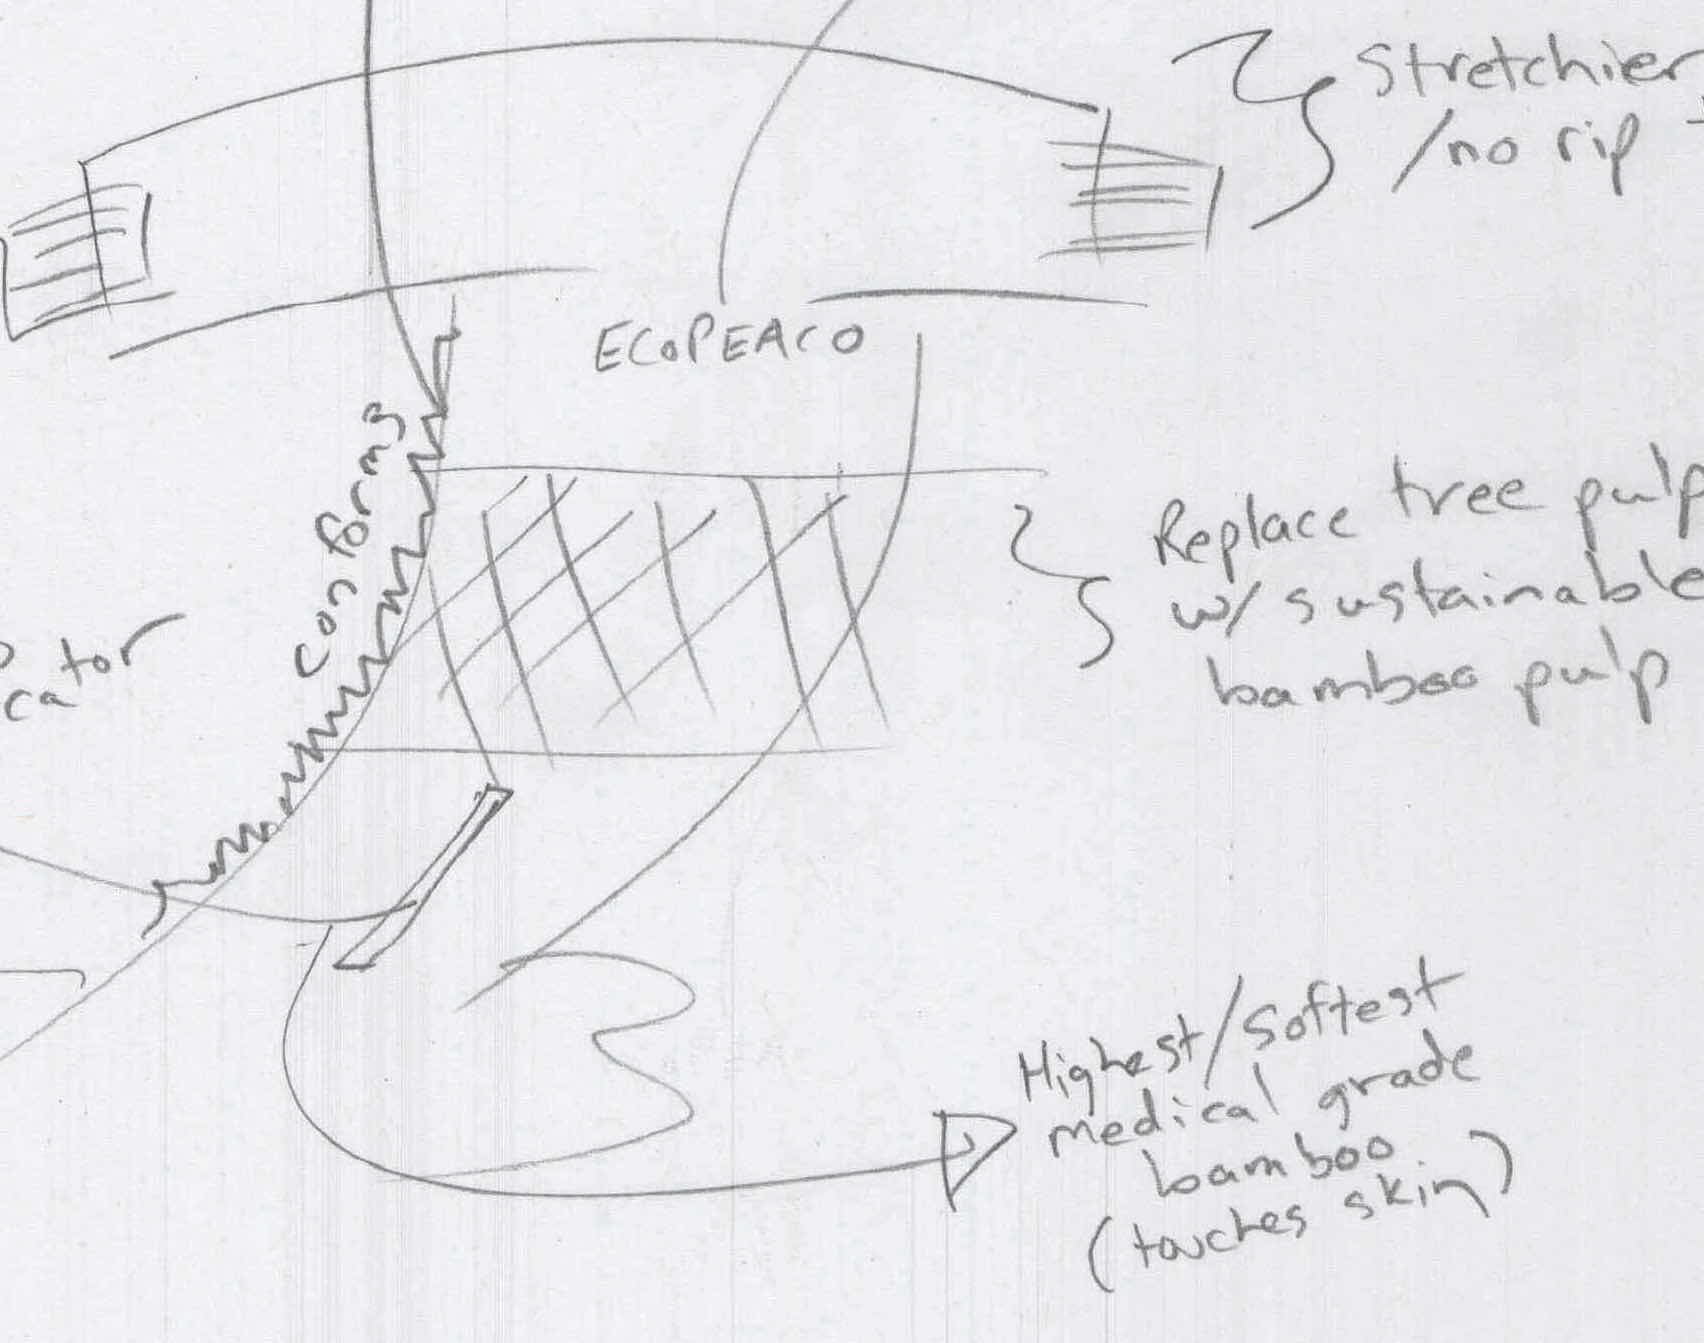 Stretchier
/no rip
ECOPEACO
conforming
Replace tree pulp
w/ sustainable
bamboo pulp
cator
Highest/softest
medical grade
bamboo
(touches skin)